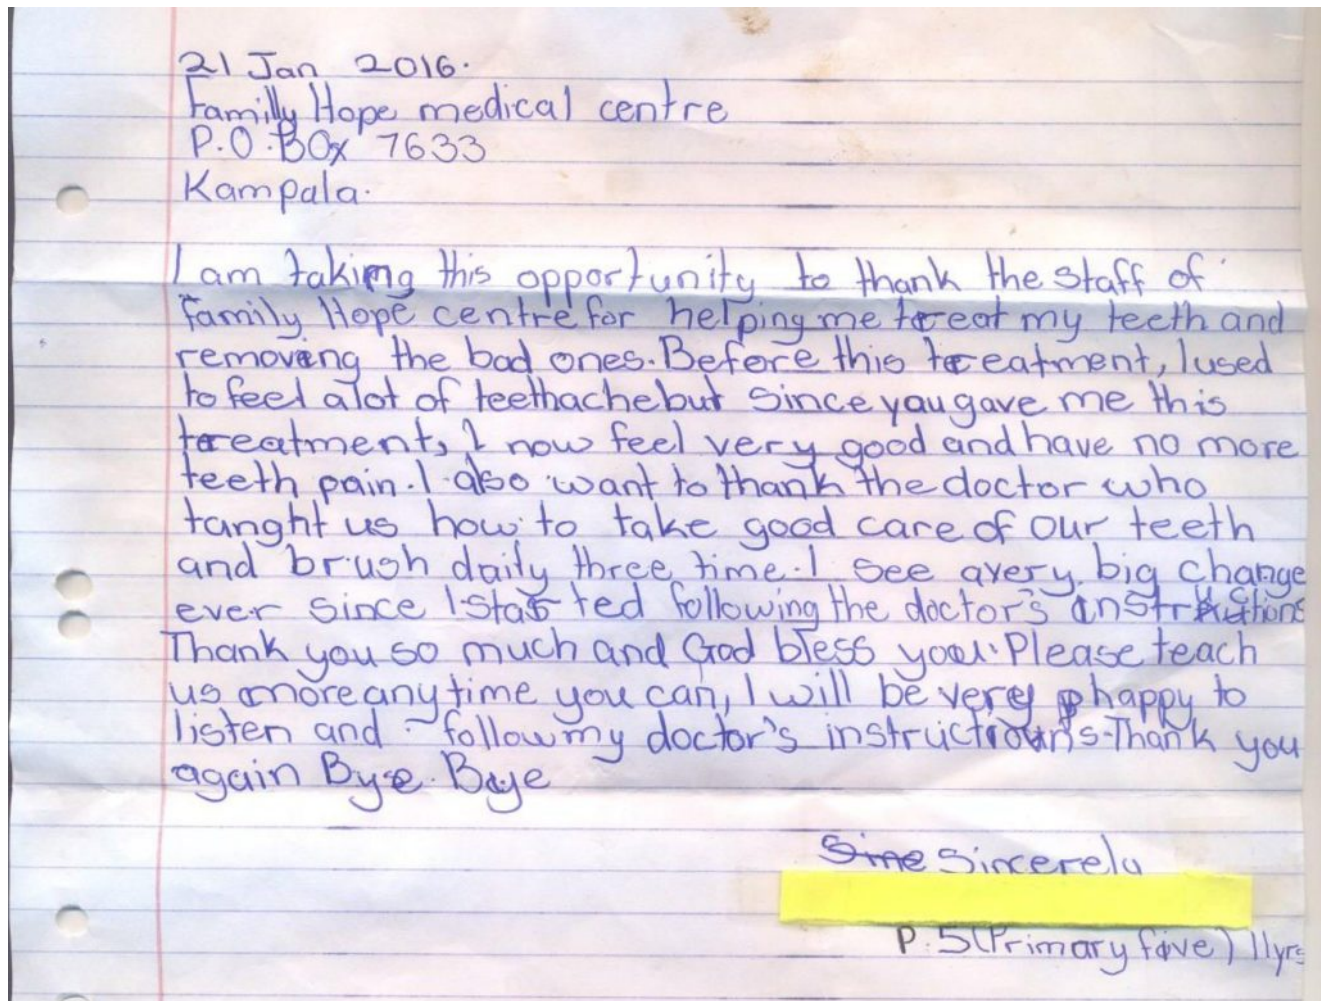 21 Jan 2016.
Familly Hope medical centre
P.O.BOx 7633
Kampala.
I am taking this opportunity to thank the staff of
family Hope centre for helping me treat my teeth and
removing the bad ones. Before this treatment, I used
to feel alot of teethache but since you gave me this
treatment, I now feel very good and have no more
teeth pain. I also want to thank the doctor who
tanght us how to take good care of our teeth
and brush daily three time. I see avery big change
ever since I started following the doctor's instructions
Thank you so much and God bless you. Please teach
us more anytime you can, I will be very happy to
listen and follow my doctor's instructions. Thank you
again Bye. Bye
Sine Sincerely
P.5 (Primary five) 11yrs